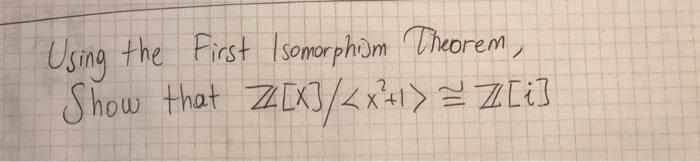 Using the First Isomorphism Theorem,
Show that ℤ[x]/<x²+1> ≅ ℤ[i]